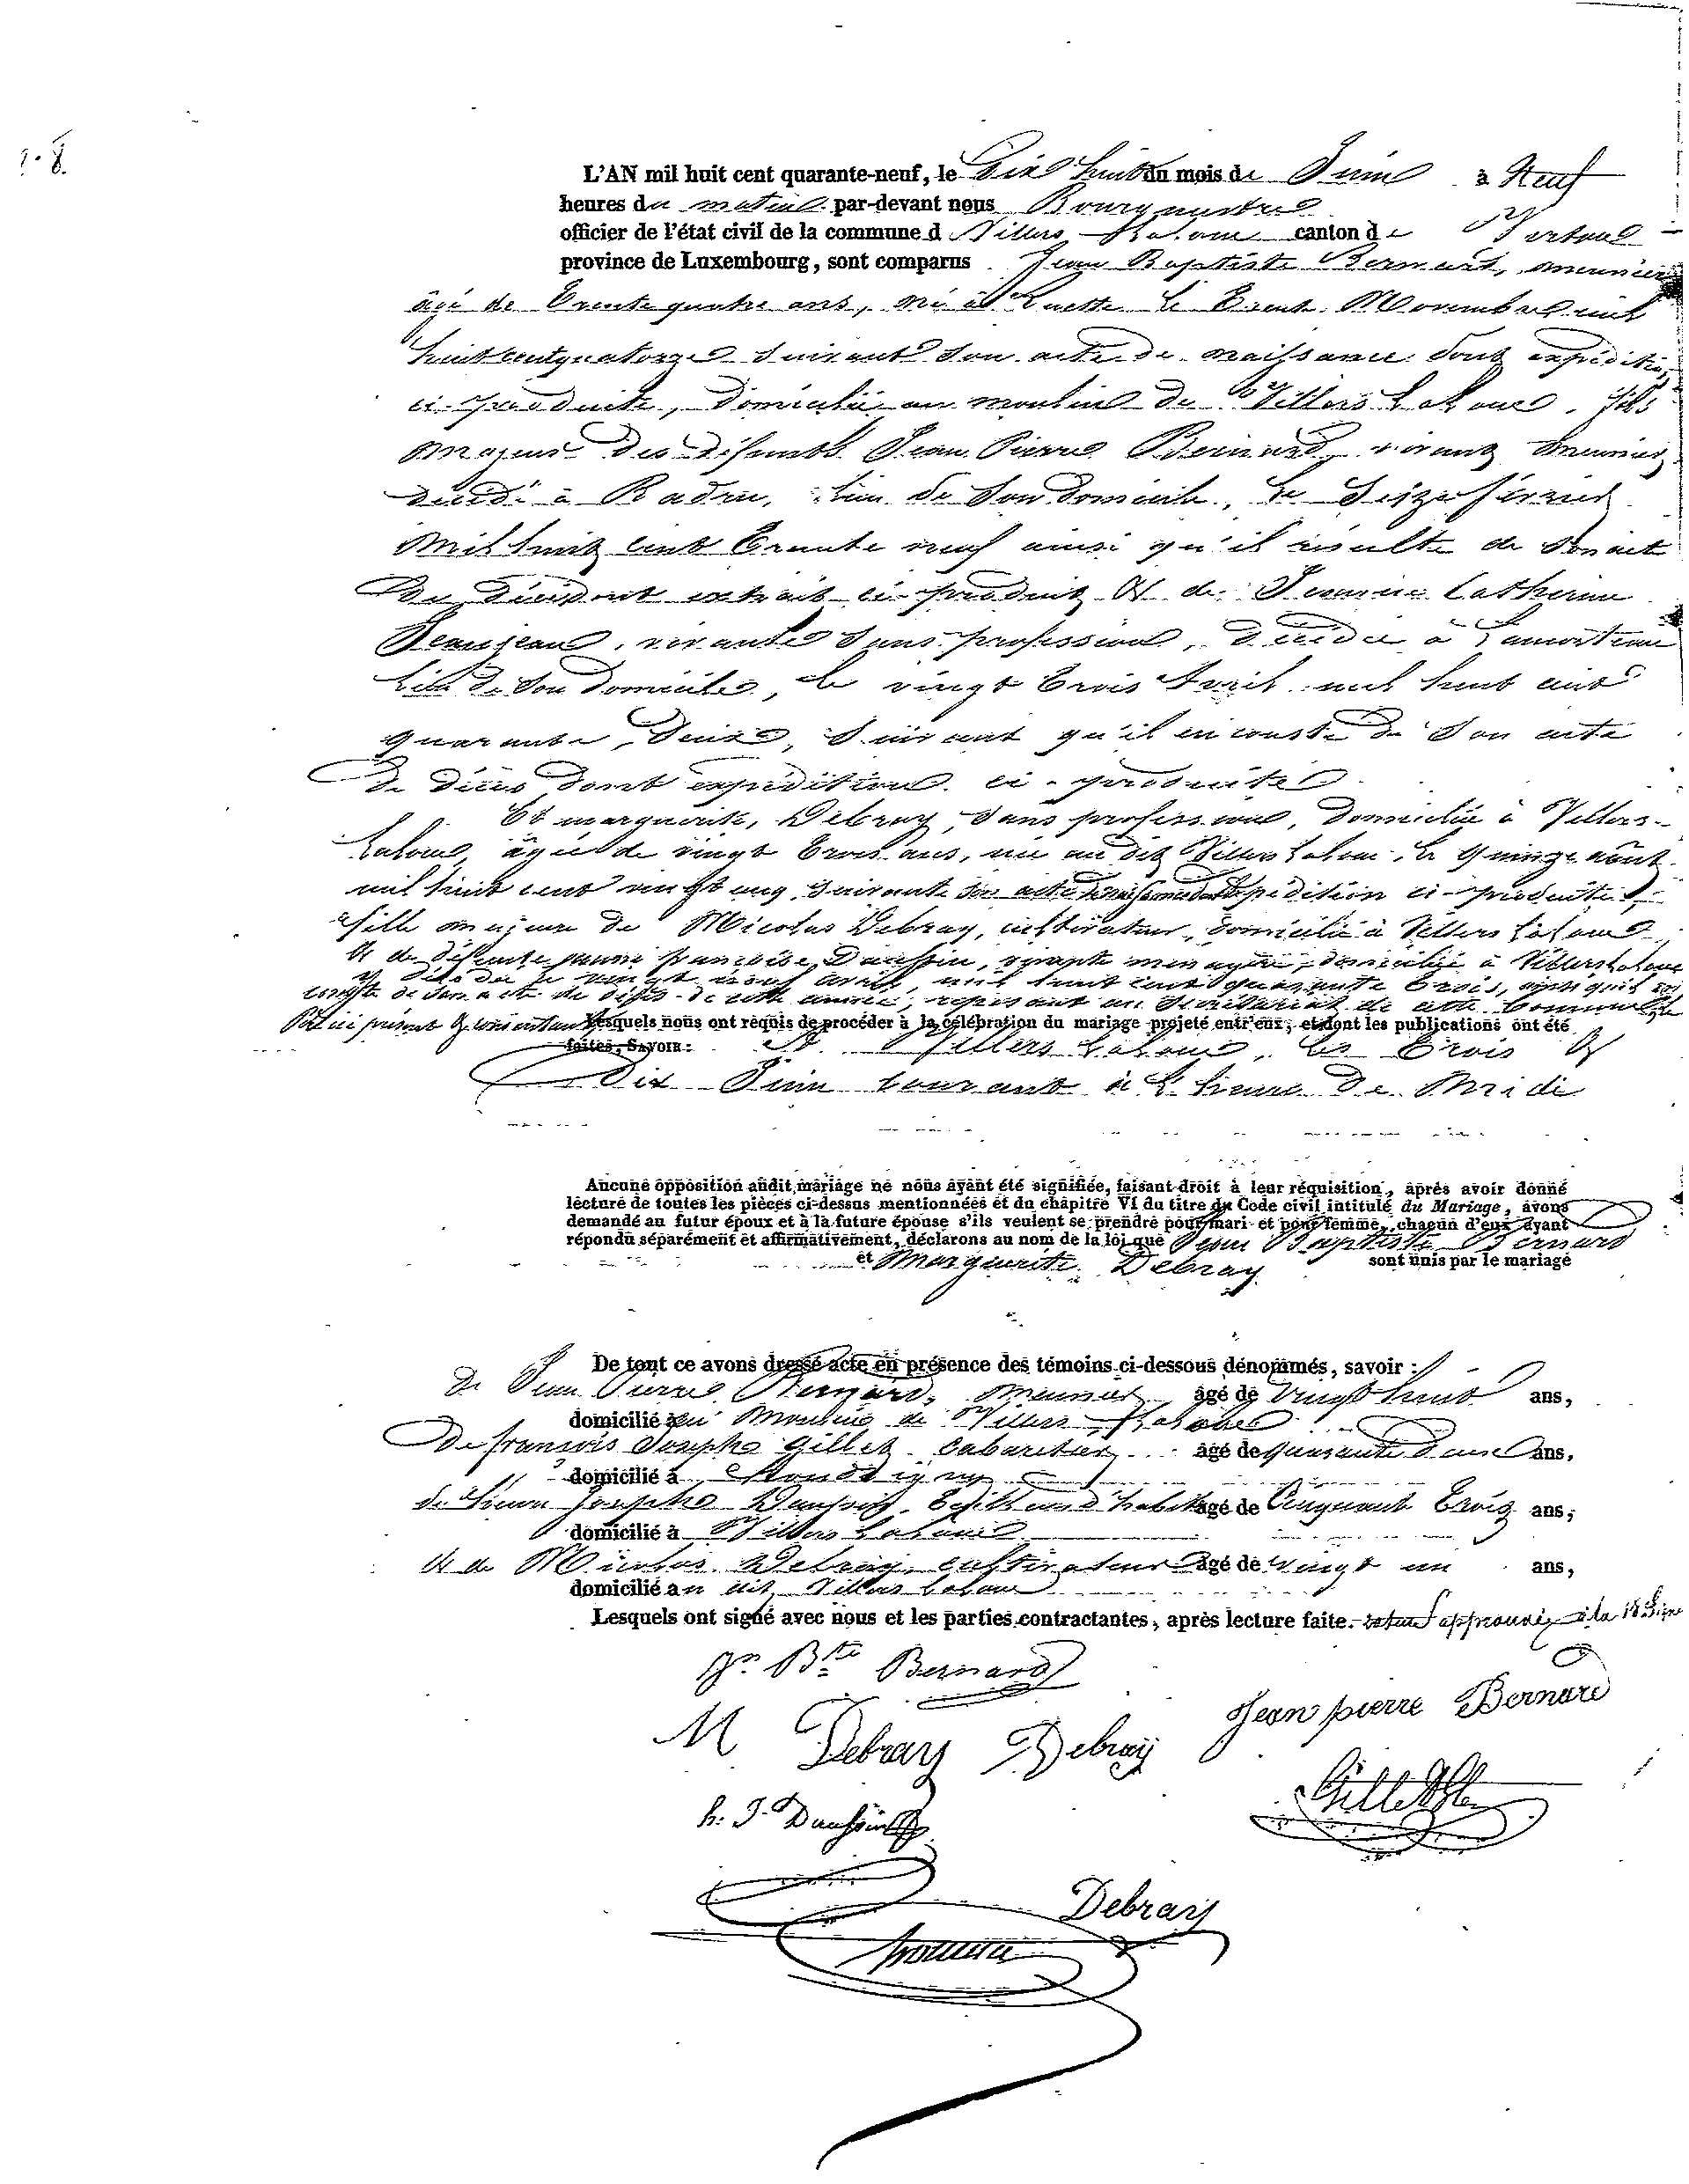 n. 8.
L'AN mil huit cent quarante-neuf, le Dix huit du mois de Juin à Neuf
heures du matin par-devant nous Bourgmestre
officier de l'état civil de la commune d Villers Laloue canton de Virton
province de Luxembourg, sont comparus Jean Baptiste Bernard, meunier
âgé de Trente quatre ans, né à le Trente Novembre mil
huit cent quatorze suivant son acte de naissance dont expédition
ci-produite, domicilié au moulin de Villers Laloue, fils
majeur des défunts Jean Pierre Bernard, vivant meunier
décédé à Radru, lieu de son domicile, le Seize février
mil huit cent Trente neuf ainsi qu'il résulte de son acte
de décès dont extrait ci-produit & de Jeanne Catherine
Jeanjean, vivante sans profession, décédée à Lamorteau
lieu de son domicile, le vingt Trois Avril mil huit cent
quarante Deux, suivant qu'il en conste de Son acte
de décès dont expédition ci-produite
Et marguerite Debray, sans profession, domiciliée à Villers-
Laloue, âgée de vingt Trois ans, née au dit Villers Laloue, le quinze août
mil huit cent vingt cinq suivant son acte de naissance dont expédition ci-produite,
fille majeure de Nicolas Debray, cultivateur, domicilié à Villers Laloue
& de défunte jeanne françoise Daussin, vivante ménagère, domiciliée à Villers Laloue
y décédée le vingt neuf avril, mil huit cent quarante Trois, ainsi qu'il en
conste de son acte de décès de cette année, reposant au Secrétariat de cette Commune, le
Père ici présent & consentant Lesquels nous ont requis de procéder à la célébration du mariage projeté entr'eux, et dont les publications ont été
faites, SAVOIR: A Villers Laloue, les Trois &
Dix Juin courant à l'heure de Midi
Aucune opposition audit mariage ne nous ayant été signifiée, faisant droit à leur réquisition, après avoir donné
lecture de toutes les pièces ci-dessus mentionnées et du chapitre VI du titre du Code civil intitulé du Mariage, avons
demandé au futur époux et à la future épouse s'ils veulent se prendre pour mari et pour femme, chacun d'eux ayant
répondu séparément et affirmativement, déclarons au nom de la loi que Jean Baptiste Bernard
et Marguerite Debray sont unis par le mariage
De tout ce avons dressé acte en présence des témoins ci-dessous dénommés, savoir:
De Jean Pierre Bernard, meunier âgé de vingt huit ans,
domicilié au Moulin de Villers Laloue
De françois Joseph Gillet Cabaretier âgé de quarante deux ans,
domicilié à
de Joseph Daussin, âgé de Cinquante Trois ans,
domicilié à Villers Laloue
& de Nicolas Debray, cultivateur âgé de vingt un ans,
domicilié au dit Villers Laloue
Lesquels ont signé avec nous et les parties contractantes, après lecture faite. approuvé à la 18 ligne
Jn Bte Bernard
Jean pierre Bernard
M Debray Debray
Gillet
h: J. Daussin
Debray